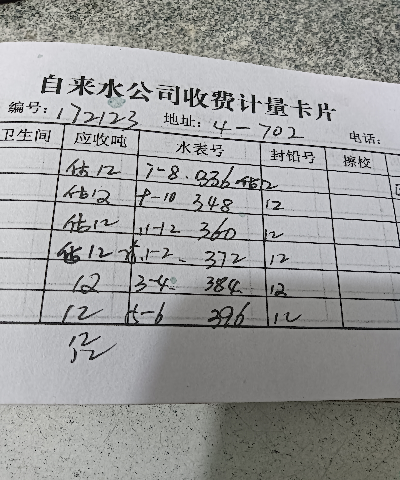 自来水公司收费计量卡片
编号: 172123 地址: 4-702 电话:
卫生间 应收吨 水表号 封铅号 擦校
估12 7-8. 336 估12
估12 9-10 348 12
估12 11-12 360 12
估12 1-2- 372 12
12 3-4- 384 12
12 5-6 396 12
12
12